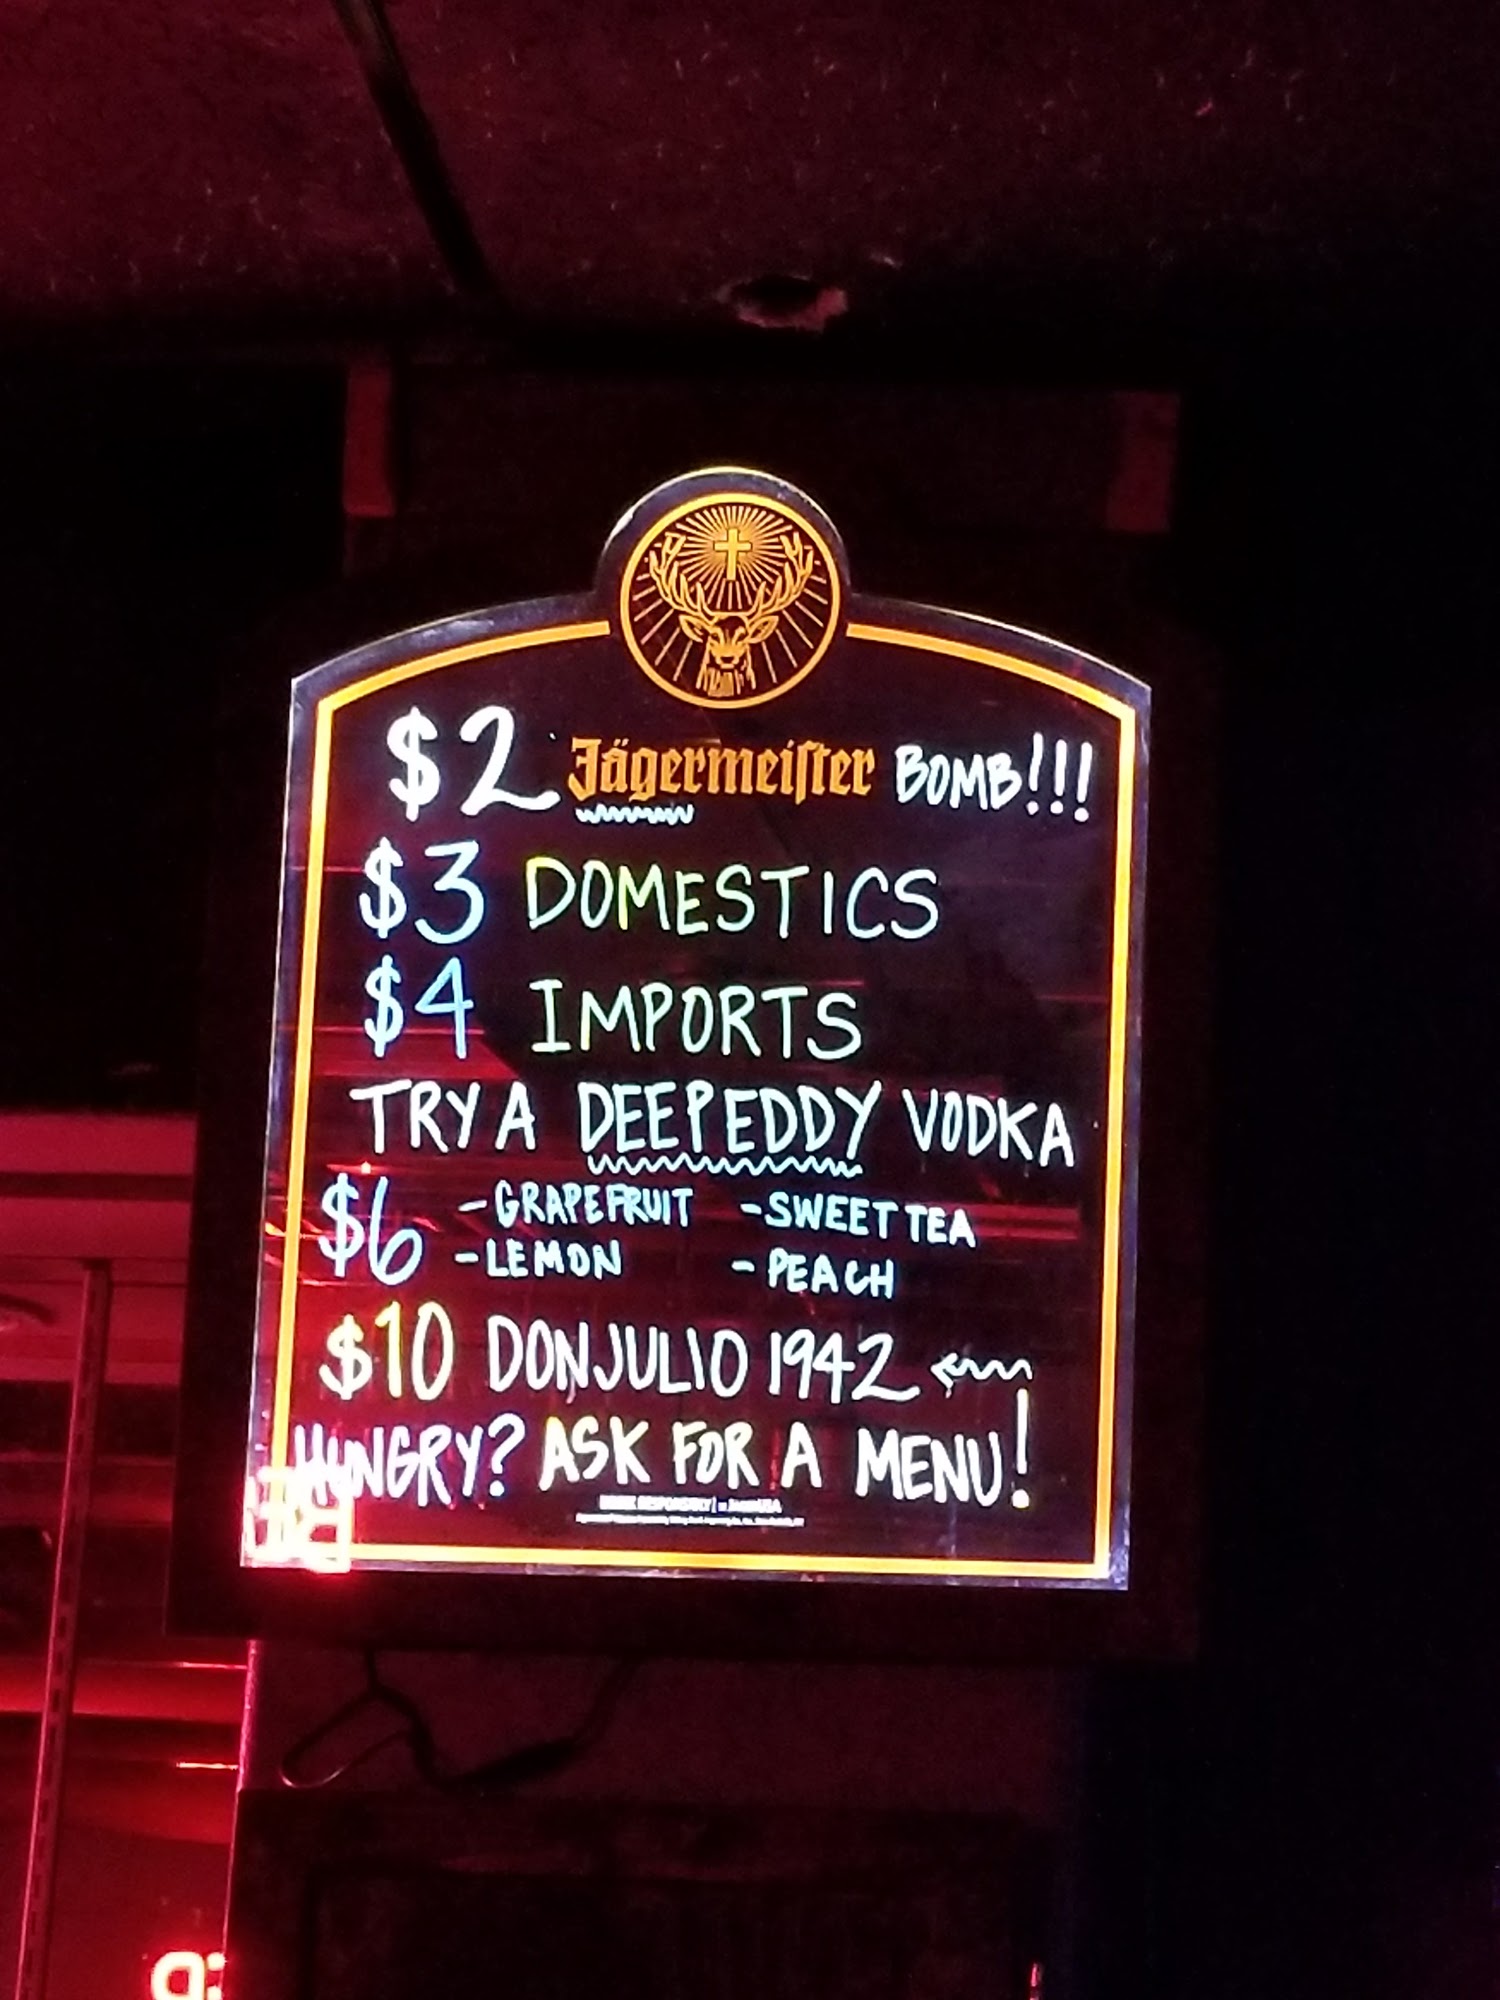 $2 Jägermeiſter BOMB!!!
$3 DOMESTICS
$4 IMPORTS
TRY A DEEP EDDY VODKA
$6 -GRAPEFRUIT -SWEET TEA
-LEMON -PEACH
$10 DON JULIO 1942
HUNGRY? ASK FOR A MENU!